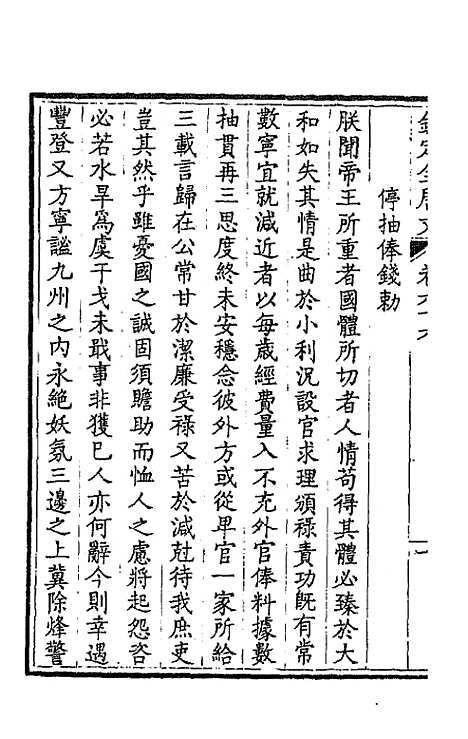 停抽俸錢勅
朕聞帝王所重者國體所切者人情苟得其體必臻於大
和如失其情是曲於小利況設官求理頒祿責功旣有常
數寧宜就減近者以每歳經費量入不充外官俸料據數
抽貫再三思度終未安穩念彼外方或從卑官一家所給
三載言歸在公常甘於潔廉受祿又苦於減尅待我庶吏
豈其然乎雖憂國之誠固須贍助而恤人之慮將起怨咨
必若水旱爲虞干戈未戢事非獲已人亦何辭今則幸遇
豐登又方寧謐九州之內永絕妖氛三邊之上冀除烽警